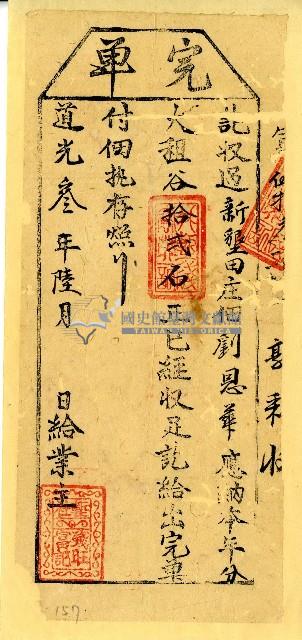 完單
記收過新墾田庄佃劉恩華應納本年分
大租谷拾貳石正已經收足記給出完單
付佃執存照
道光叁年陸月 日給業主
國史館臺灣文獻館
TAIWAN HISTORICA
157